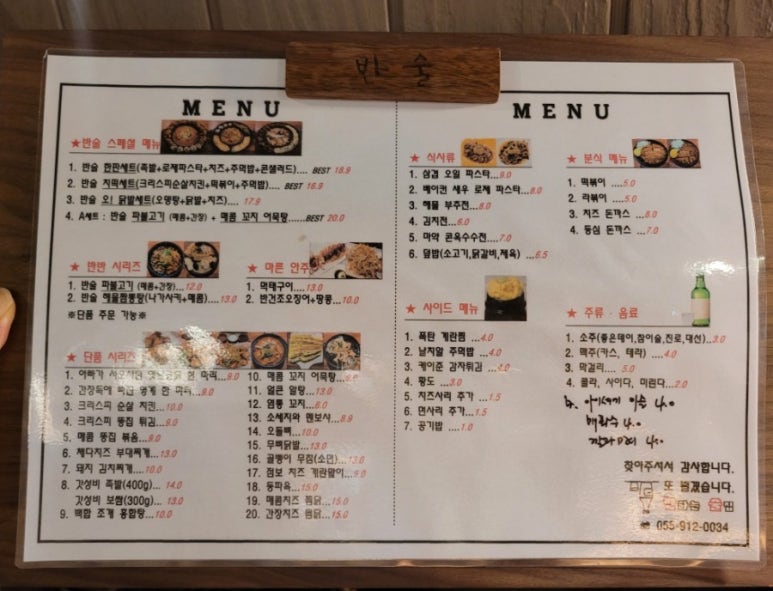 반술
MENU
★반술 스페셜 메뉴
1. 반술 한판세트(족발+로제파스타+치즈+주먹밥+콘샐러드).... BEST 18.9
2. 반술 치떡세트(크리스피순살치킨+떡볶이+주먹밥)... BEST 16.9
3. 반술 오! 닭발세트(오뎅탕+닭발+치즈)... 17.9
4. A세트 : 반술 파불고기 (매콤+간장) + 매콤 꼬지 어묵탕......BEST 20.0
★ 반반 시리즈
1. 반술 파불고기 (매콤+간장)...12.0
2. 반술 해물짬뽕탕(나가사키+매콤)...13.0
※단품 주문 가능※
★ 마른 안주
1. 먹태구이...13.0
2. 반건조오징어+땅콩...10.0
★ 단품 시리즈
1. 아빠가 한 마리...9.0
2. 간장독에 빠진 한 마리...9.0
3. 크리스피 순살 치킨...10.0
4. 크리스피 똥집 튀김...9.0
5. 매콤 똥집 볶음...9.0
6. 체다치즈 부대찌개...13.0
7. 돼지 김치찌개...10.0
8. 갓성비 족발(400g)... 14.0
갓성비 보쌈(300g)... 13.0
9. 백합 조개 홍합탕...10.0
10. 매콤 꼬지 어묵탕...9.0
11. 얼큰 알탕...13.0
12. 염통 꼬지...6.0
13. 소세지와 멘보샤...8.9
14. 오돌뼈...10.0
15. 무뼈닭발...13.0
16. 골뱅이 무침(소면)...13.0
17. 점보 치즈 계란말이...9.0
18. 동파육...15.0
19. 매콤치즈 찜닭...15.0
20. 간장치즈 찜닭...15.0
MENU
★ 식사류
1. 삼겹 오일 파스타...9.0
2. 베이컨 새우 로제 파스타...8.0
3. 해물 부추전...8.0
4. 김치전...6.0
5. 마약 콘옥수수전...7.0
6. 덮밥(소고기,닭갈비,제육) ...6.5
★ 분식 메뉴
1. 떡볶이 ....5.0
2. 라볶이 ....5.0
3. 치즈 돈까스 ...8.0
4. 등심 돈까스 ...7.0
★ 사이드 메뉴
1. 폭탄 계란찜 ...4.0
2. 날치알 주먹밥 ...4.0
3. 케이준 감자튀김 ...4.0
4. 황도 ...3.0
5. 치즈사리 추가 ...1.5
6. 면사리 추가 ...1.5
7. 공기밥 ....1.0
★ 주류 · 음료
1. 소주(좋은데이,참이슬,진로,대선)...3.0
2. 맥주(카스, 테라) ....4.0
3. 막걸리.... 5.0
4. 콜라, 사이다, 미린다...2.0
이슬 4.0
매화수 4.0
4.0
찾아주셔서 감사합니다.
또 뵙겠습니다.
☎ 055-912-0034